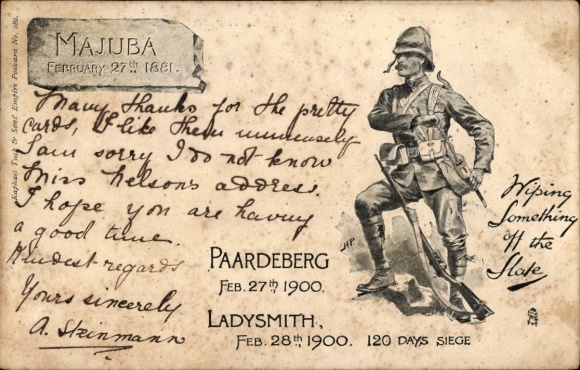 MAJUBA
FEBRUARY 27th 1881.
Raphael Tuck & Sons' Empire Postcard No.
Many thanks for the pretty
cards, I like them immensely
I am sorry I do not know
Miss Nelson's address.
I hope you are having
a good time.
Kindest regards
Yours sincerely
A. Steinmann
Wiping
Something
off the
Slate
HP
PAARDEBERG
FEB. 27th 1900.
LADYSMITH,
FEB. 28th 1900. 120 DAYS SIEGE